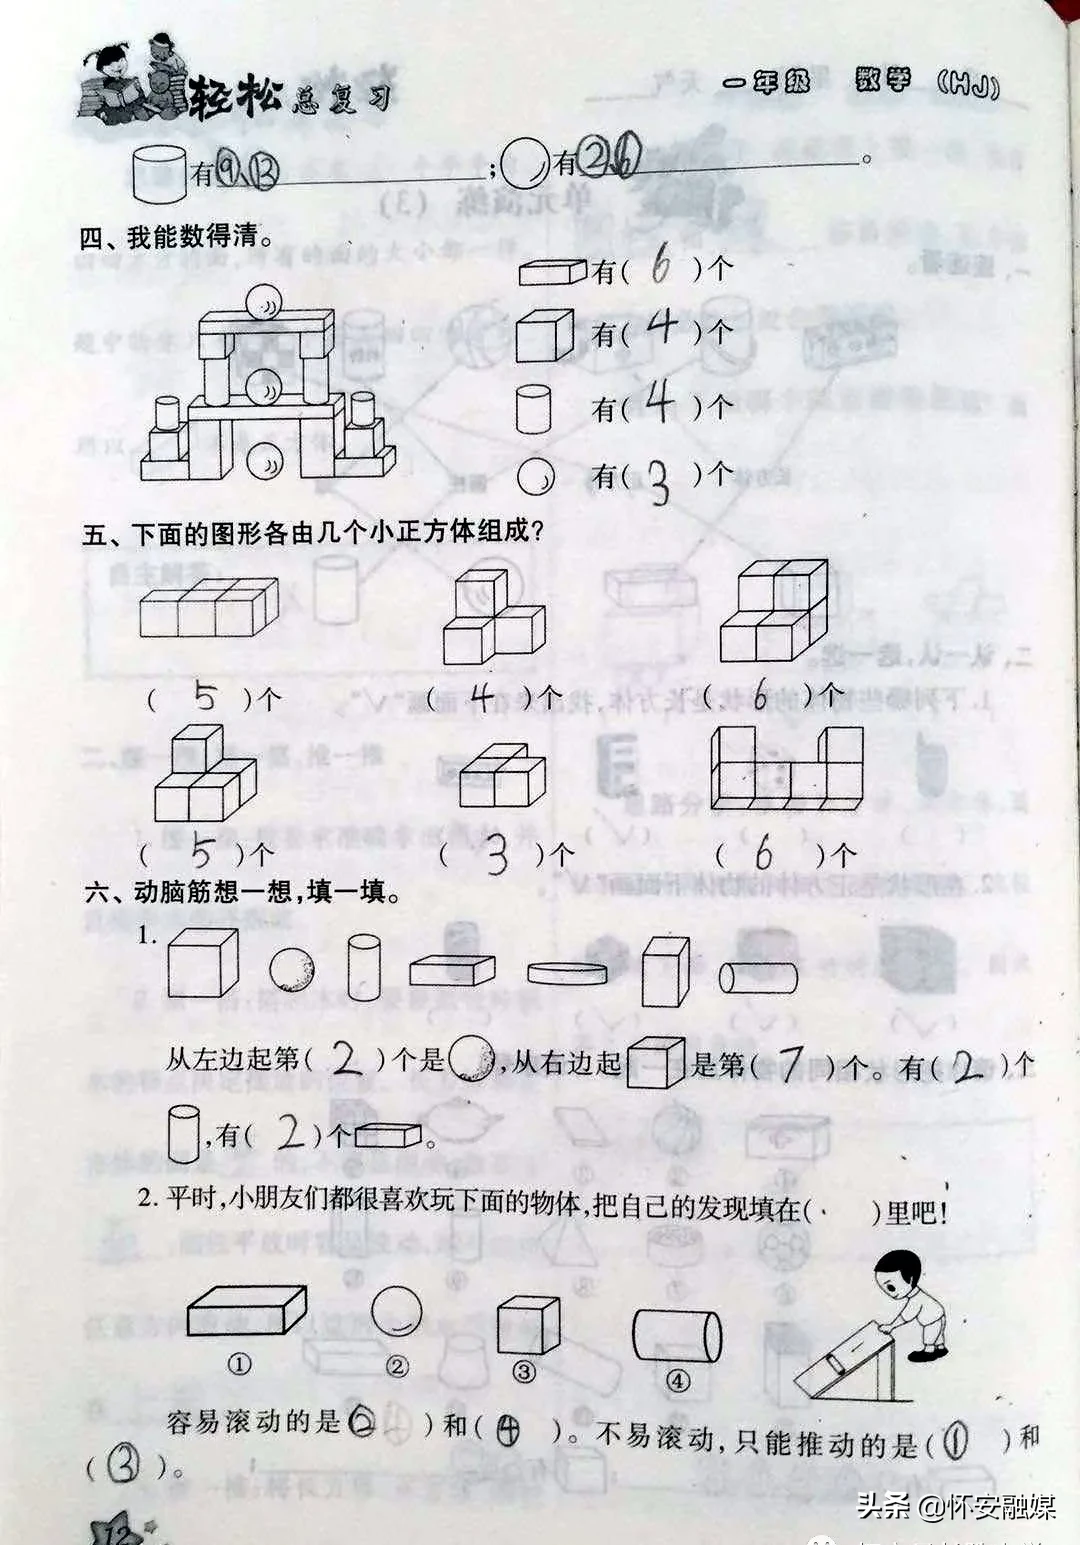 轻松总复习 一年级 数学 (HJ)
有⑨、⑬; 有②、⑥。
四、我能数得清。
有( 6 )个
有( 4 )个
有( 4 )个
有( 3 )个
五、下面的图形各由几个小正方体组成?
( 5 )个 ( 4 )个 ( 6 )个
( 5 )个 ( 3 )个 ( 6 )个
六、动脑筋想一想,填一填。
1.
从左边起第( 2 )个是 ,从右边起 是第( 7 )个。有( 2 )个
,有( 2 )个 。
2. 平时,小朋友们都很喜欢玩下面的物体,把自己的发现填在( )里吧!
① ② ③ ④
容易滚动的是(② )和(④ )。不易滚动,只能推动的是(① )和
(③ )。
12
头条 @怀安融媒